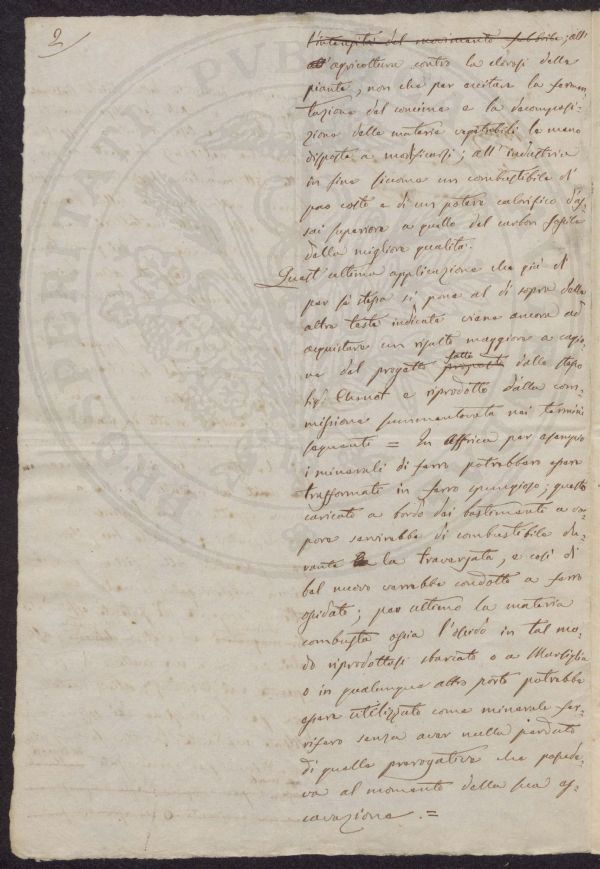 2/
l'intensità del movimento febbrile; all'
all' agricoltura contro la clorosi delle
piante, non che per eccitare la fermen=
tazione del concime e la decomposi=
zione delle materie vegetabili le meno
disposte a modificarsi; all' industria
in fine siccome un combustibile di
poco costo e di un potere calorifico as=
sai superiore a quello del carbon fossile
della migliore qualità.
Quest' ultima applicazione che più di
per se stessa si pone al di sopra delle
altre teste indicate viene ancora ad
acquistare un risalto maggiore a cagio=
ne del progetto proposto fatto dallo stesso
Sig. Chenot e riprodotto dalla com=
missione summentovata nei termini
seguenti = In Affrica per esempio
i minerali di ferro potrebbero essere
trasformati in ferro spugnoso; questo
caricato a bordo dei bastimenti a va=
pore servirebbe di combustibile du=
rante la traversata, e così di
bel nuovo verrebbe condotto a ferro
ossidato; per ultimo la materia
combusta ossia l'ossido in tal mo=
do riprodottosi sbarcato o a Marsiglia
o in qualunque altro porto potrebbe
essere utilizzato come minerale fer=
rifero senza aver nulla perduto
di quelle prerogative che possede=
va al momento della sua es=
cavazione. =
PROSPERITATI PVB